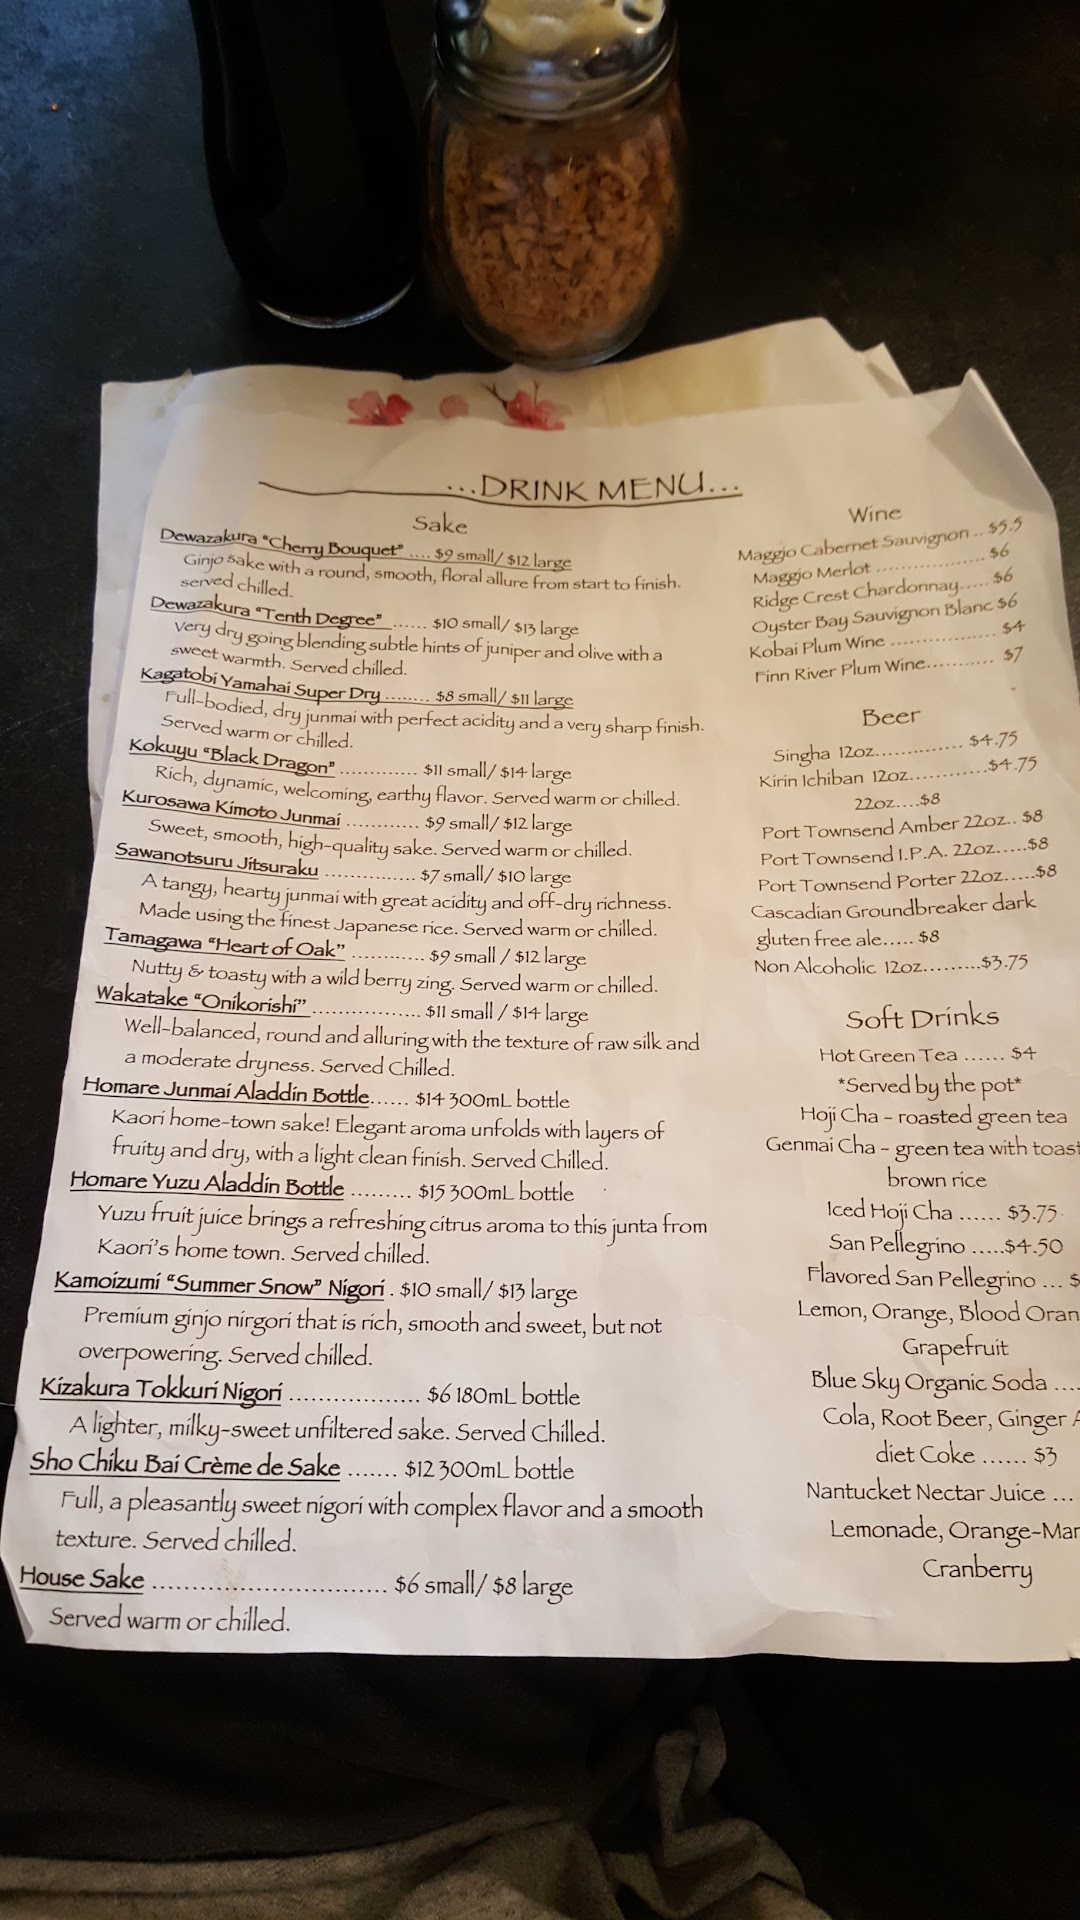 ...DRINK MENU...
Sake
Dewazakura "Cherry Bouquet" .... $9 small/ $12 large
Ginjo sake with a round, smooth, floral allure from start to finish.
served chilled.
Dewazakura "Tenth Degree" ...... $10 small/ $13 large
very dry going blending subtle hints of juniper and olive with a
sweet warmth. Served chilled.
Kagatobi Yamahai Super Dry ........ $8 small/ $11 large
Full-bodied, dry junmai with perfect acidity and a very sharp finish.
Served warm or chilled.
Kokuyu "Black Dragon" ............. $11 small/ $14 large
Rich, dynamic, welcoming, earthy flavor. Served warm or chilled.
Kurosawa Kimoto Junmai ............ $9 small/ $12 large
Sweet, smooth, high-quality sake. Served warm or chilled.
Sawanotsuru Jitsuraku ................ $7 small/ $10 large
A tangy, hearty junmai with great acidity and off-dry richness.
Made using the finest Japanese rice. Served warm or chilled.
Tamagawa "Heart of Oak" ............ $9 small / $12 large
Nutty & toasty with a wild berry zing. Served warm or chilled.
Wakatake "Onikorishi" .................. $11 small / $14 large
Well-balanced, round and alluring with the texture of raw silk and
a moderate dryness. Served Chilled.
Homare Junmai Aladdin Bottle...... $14 300mL bottle
Kaori home-town sake! Elegant aroma unfolds with layers of
fruity and dry, with a light clean finish. Served Chilled.
Homare Yuzu Aladdin Bottle ......... $15 300mL bottle
Yuzu fruit juice brings a refreshing citrus aroma to this junta from
Kaori's home town. Served chilled.
Kamoizumi "Summer Snow" Nigori . $10 small/ $13 large
Premium ginjo nirgori that is rich, smooth and sweet, but not
overpowering. Served chilled.
Kizakura Tokkuri Nigori .................. $6 180mL bottle
A lighter, milky-sweet unfiltered sake. Served Chilled.
Sho Chiku Bai Crème de Sake ....... $12 300mL bottle
Full, a pleasantly sweet nigori with complex flavor and a smooth
texture. Served chilled.
House Sake ............................. $6 small/ $8 large
Served warm or chilled.
Wine
Maggio Cabernet Sauvignon .. $5.5
Maggio Merlot .................. $6
Ridge Crest Chardonnay..... $6
Oyster Bay Sauvignon Blanc $6
Kobai Plum Wine ................. $4
Finn River Plum Wine........... $7
Beer
Singha 12oz.............. $4.75
Kirin Ichiban 12oz............$4.75
22oz....$8
Port Townsend Amber 22oz.. $8
Port Townsend I.P.A. 22oz.....$8
Port Townsend Porter 22oz.....$8
Cascadian Groundbreaker dark
gluten free ale..... $8
Non Alcoholic 12oz.........$3.75
Soft Drinks
Hot Green Tea ...... $4
*Served by the pot*
Hoji Cha - roasted green tea
Genmai Cha - green tea with
brown rice
Iced Hoji Cha ...... $3.75
San Pellegrino .....$4.50
Flavored San Pellegrino ... $
Lemon, Orange, Blood
Grapefruit
Blue Sky Organic Soda ....
Cola, Root Beer, Ginger
diet Coke ...... $3
Nantucket Nectar Juice ...
Lemonade,
Cranberry